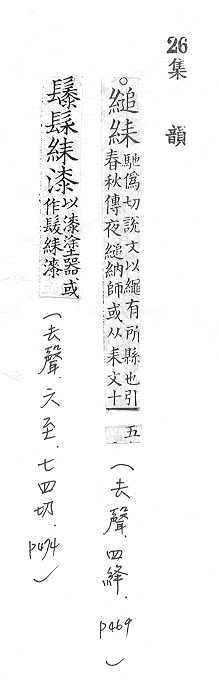 26
集韻
。縋
馳偽切說文以繩有所縣也引
春秋傳夜縋納師或从耒文十
五
(去聲.四絳.
p469
䰍髹漆
以漆塗器或
作髹漆
(去聲.六至.七四切.
p474